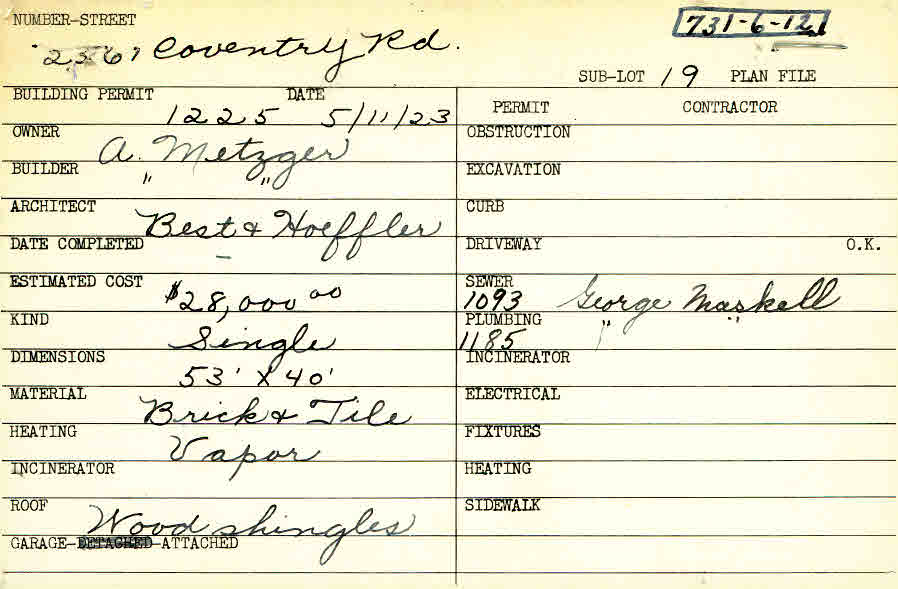 NUMBER-STREET
2361 Coventry Rd.
731-6-12
SUB-LOT 19 PLAN FILE
BUILDING PERMIT DATE
1225 5/11/23
PERMIT CONTRACTOR
OWNER
A. Metzger
OBSTRUCTION
BUILDER
" "
EXCAVATION
ARCHITECT
Best & Hoeffler
CURB
DATE COMPLETED
DRIVEWAY O.K.
ESTIMATED COST
$28,000 00
SEWER
1093 George Maskell
KIND
Single
PLUMBING
1185 " "
DIMENSIONS
53' X 40'
INCINERATOR
MATERIAL
Brick & Tile
ELECTRICAL
HEATING
Vapor
FIXTURES
INCINERATOR
HEATING
ROOF
Wood shingles
SIDEWALK
GARAGE-DETACHED-ATTACHED